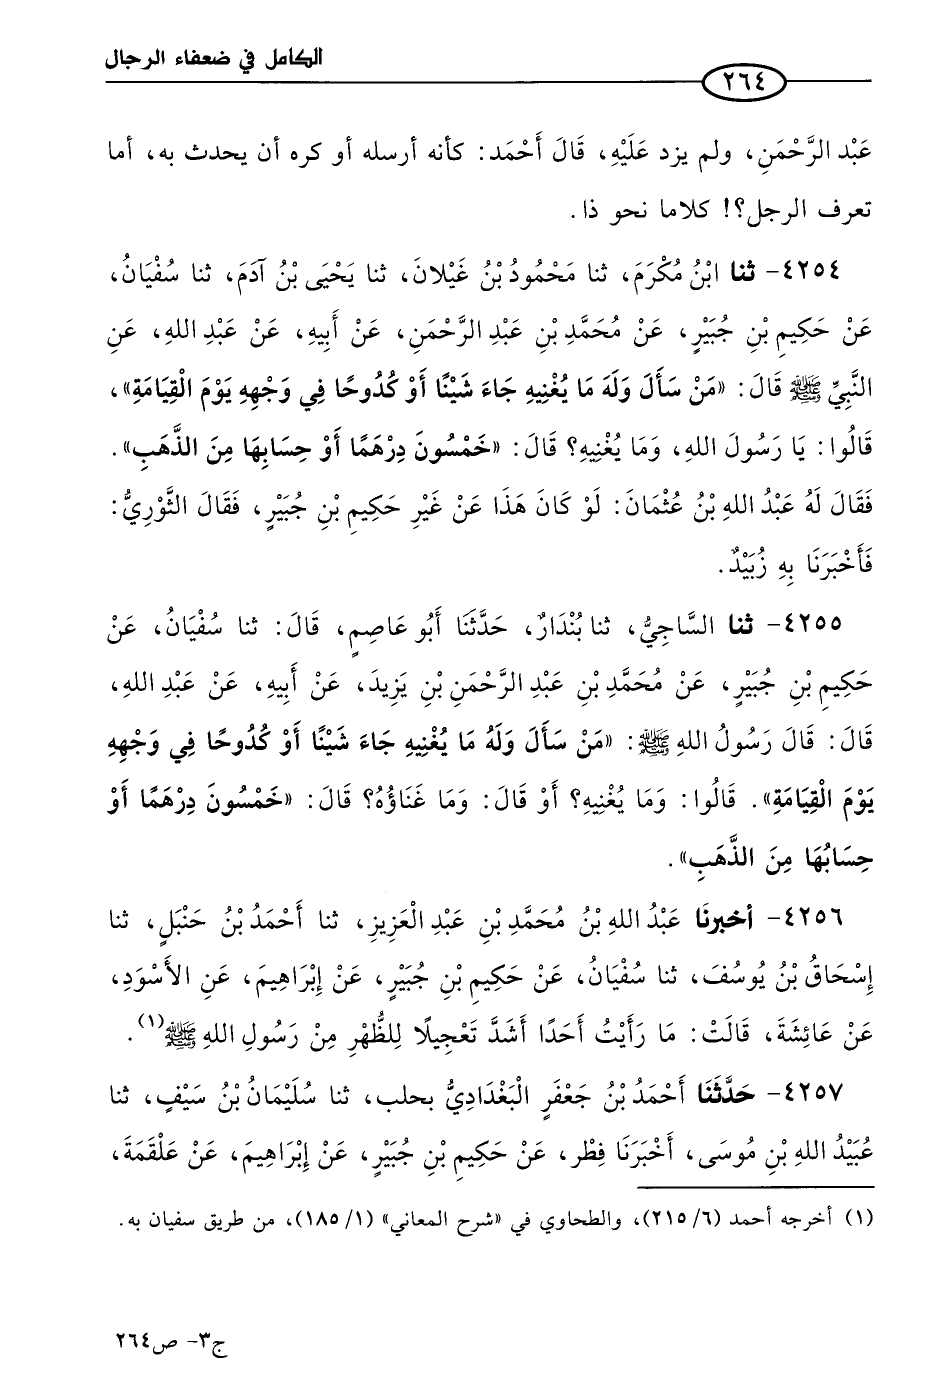 الكامل في ضعفاء الرجال
٢٦٤
عَبْد الرَّحْمَنِ، ولم يزد عَلَيْهِ، قَالَ أَحْمَد: كأنه أرسله أو كره أن يحدث به، أما
تعرف الرجل؟! كلاما نحو ذا.
٤٢٥٤- ثنا ابْنُ مُكْرَمَ، ثنا مَحْمُودُ بْنُ غَيْلانَ، ثنا يَحْيَى بْنُ آدَمَ، ثنا سُفْيَانُ،
عَنْ حَكِيمِ بْنِ جُبَيْرٍ، عَنْ مُحَمَّدِ بْنِ عَبْدِ الرَّحْمَنِ، عَنْ أَبِيهِ، عَنْ عَبْدِ اللهِ، عَنِ
النَّبِيِّ ﷺ قَالَ: «مَنْ سَأَلَ وَلَهُ مَا يُغْنِيهِ جَاءَ شَيْنًا أَوْ كُدُوحًا فِي وَجْهِهِ يَوْمَ الْقِيَامَةِ»،
قَالُوا: يَا رَسُولَ اللهِ، وَمَا يُغْنِيهِ؟ قَالَ: «خَمْسُونَ دِرْهَمًا أَوْ حِسَابِهَا مِنَ الذَّهَبِ».
فَقَالَ لَهُ عَبْدُ اللهِ بْنُ عُثْمَانَ: لَوْ كَانَ هَذَا عَنْ غَيْرِ حَكِيمِ بْنِ جُبَيْرٍ، فَقَالَ الثَّوْرِيُّ:
فَأَخْبَرَنَا بِهِ زُبَيْدٌ.
٤٢٥٥- ثنا السَّاجِيُّ، ثنا بُنْدَارٌ، حَدَّثَنَا أَبُو عَاصِمٍ، قَالَ: ثنا سُفْيَانُ، عَنْ
حَكِيمِ بْنِ جُبَيْرٍ، عَنْ مُحَمَّدِ بْنِ عَبْدِ الرَّحْمَنِ بْنِ يَزِيدَ، عَنْ أَبِيهِ، عَنْ عَبْدِ اللهِ،
قَالَ: قَالَ رَسُولُ اللهِ ﷺ: «مَنْ سَأَلَ وَلَهُ مَا يُغْنِيهِ جَاءَ شَيْنًا أَوْ كُدُوحًا فِي وَجْهِهِ
يَوْمَ الْقِيَامَةِ». قَالُوا: وَمَا يُغْنِيهِ؟ أَوْ قَالَ: وَمَا غَنَاؤُهُ؟ قَالَ: «خَمْسُونَ دِرْهَمًا أَوْ
حِسَابُهَا مِنَ الذَّهَبِ».
٤٢٥٦- أخبرنَا عَبْدُ اللهِ بْنُ مُحَمَّدِ بْنِ عَبْدِ الْعَزِيزِ، ثنا أَحْمَدُ بْنُ حَنْبَلٍ، ثنا
إِسْحَاقُ بْنُ يُوسُفَ، ثنا سُفْيَانُ، عَنْ حَكِيمِ بْنِ جُبَيْرٍ، عَنْ إِبْرَاهِيمَ، عَنِ الأَسْوَدِ،
عَنْ عَائِشَةَ، قَالَتْ: مَا رَأَيْتُ أَحَدًا أَشَدَّ تَعْجِيلًا لِلظُّهْرِ مِنْ رَسُولِ اللهِ ﷺ(١).
٤٢٥٧- حَدَّثَنَا أَحْمَدُ بْنُ جَعْفَرٍ الْبَغْدَادِيُّ بحلب، ثنا سُلَيْمَانُ بْنُ سَيْفٍ، ثنا
عُبَيْدُ اللهِ بْنِ مُوسَى، أَخْبَرَنَا فِطْر، عَنْ حَكِيمِ بْنِ جُبَيْرٍ، عَنْ إِبْرَاهِيمَ، عَنْ عَلْقَمَةَ،
(١) أخرجه أحمد (٦/ ٢١٥)، والطحاوي في «شرح المعاني» (١/ ١٨٥)، من طريق سفيان به.
ج٣- ص٢٦٤